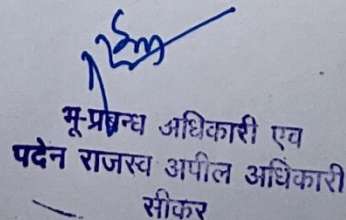 भू-प्रबन्ध अधिकारी एच
पदेन राजस्व अपील अधिकारी
सीकर